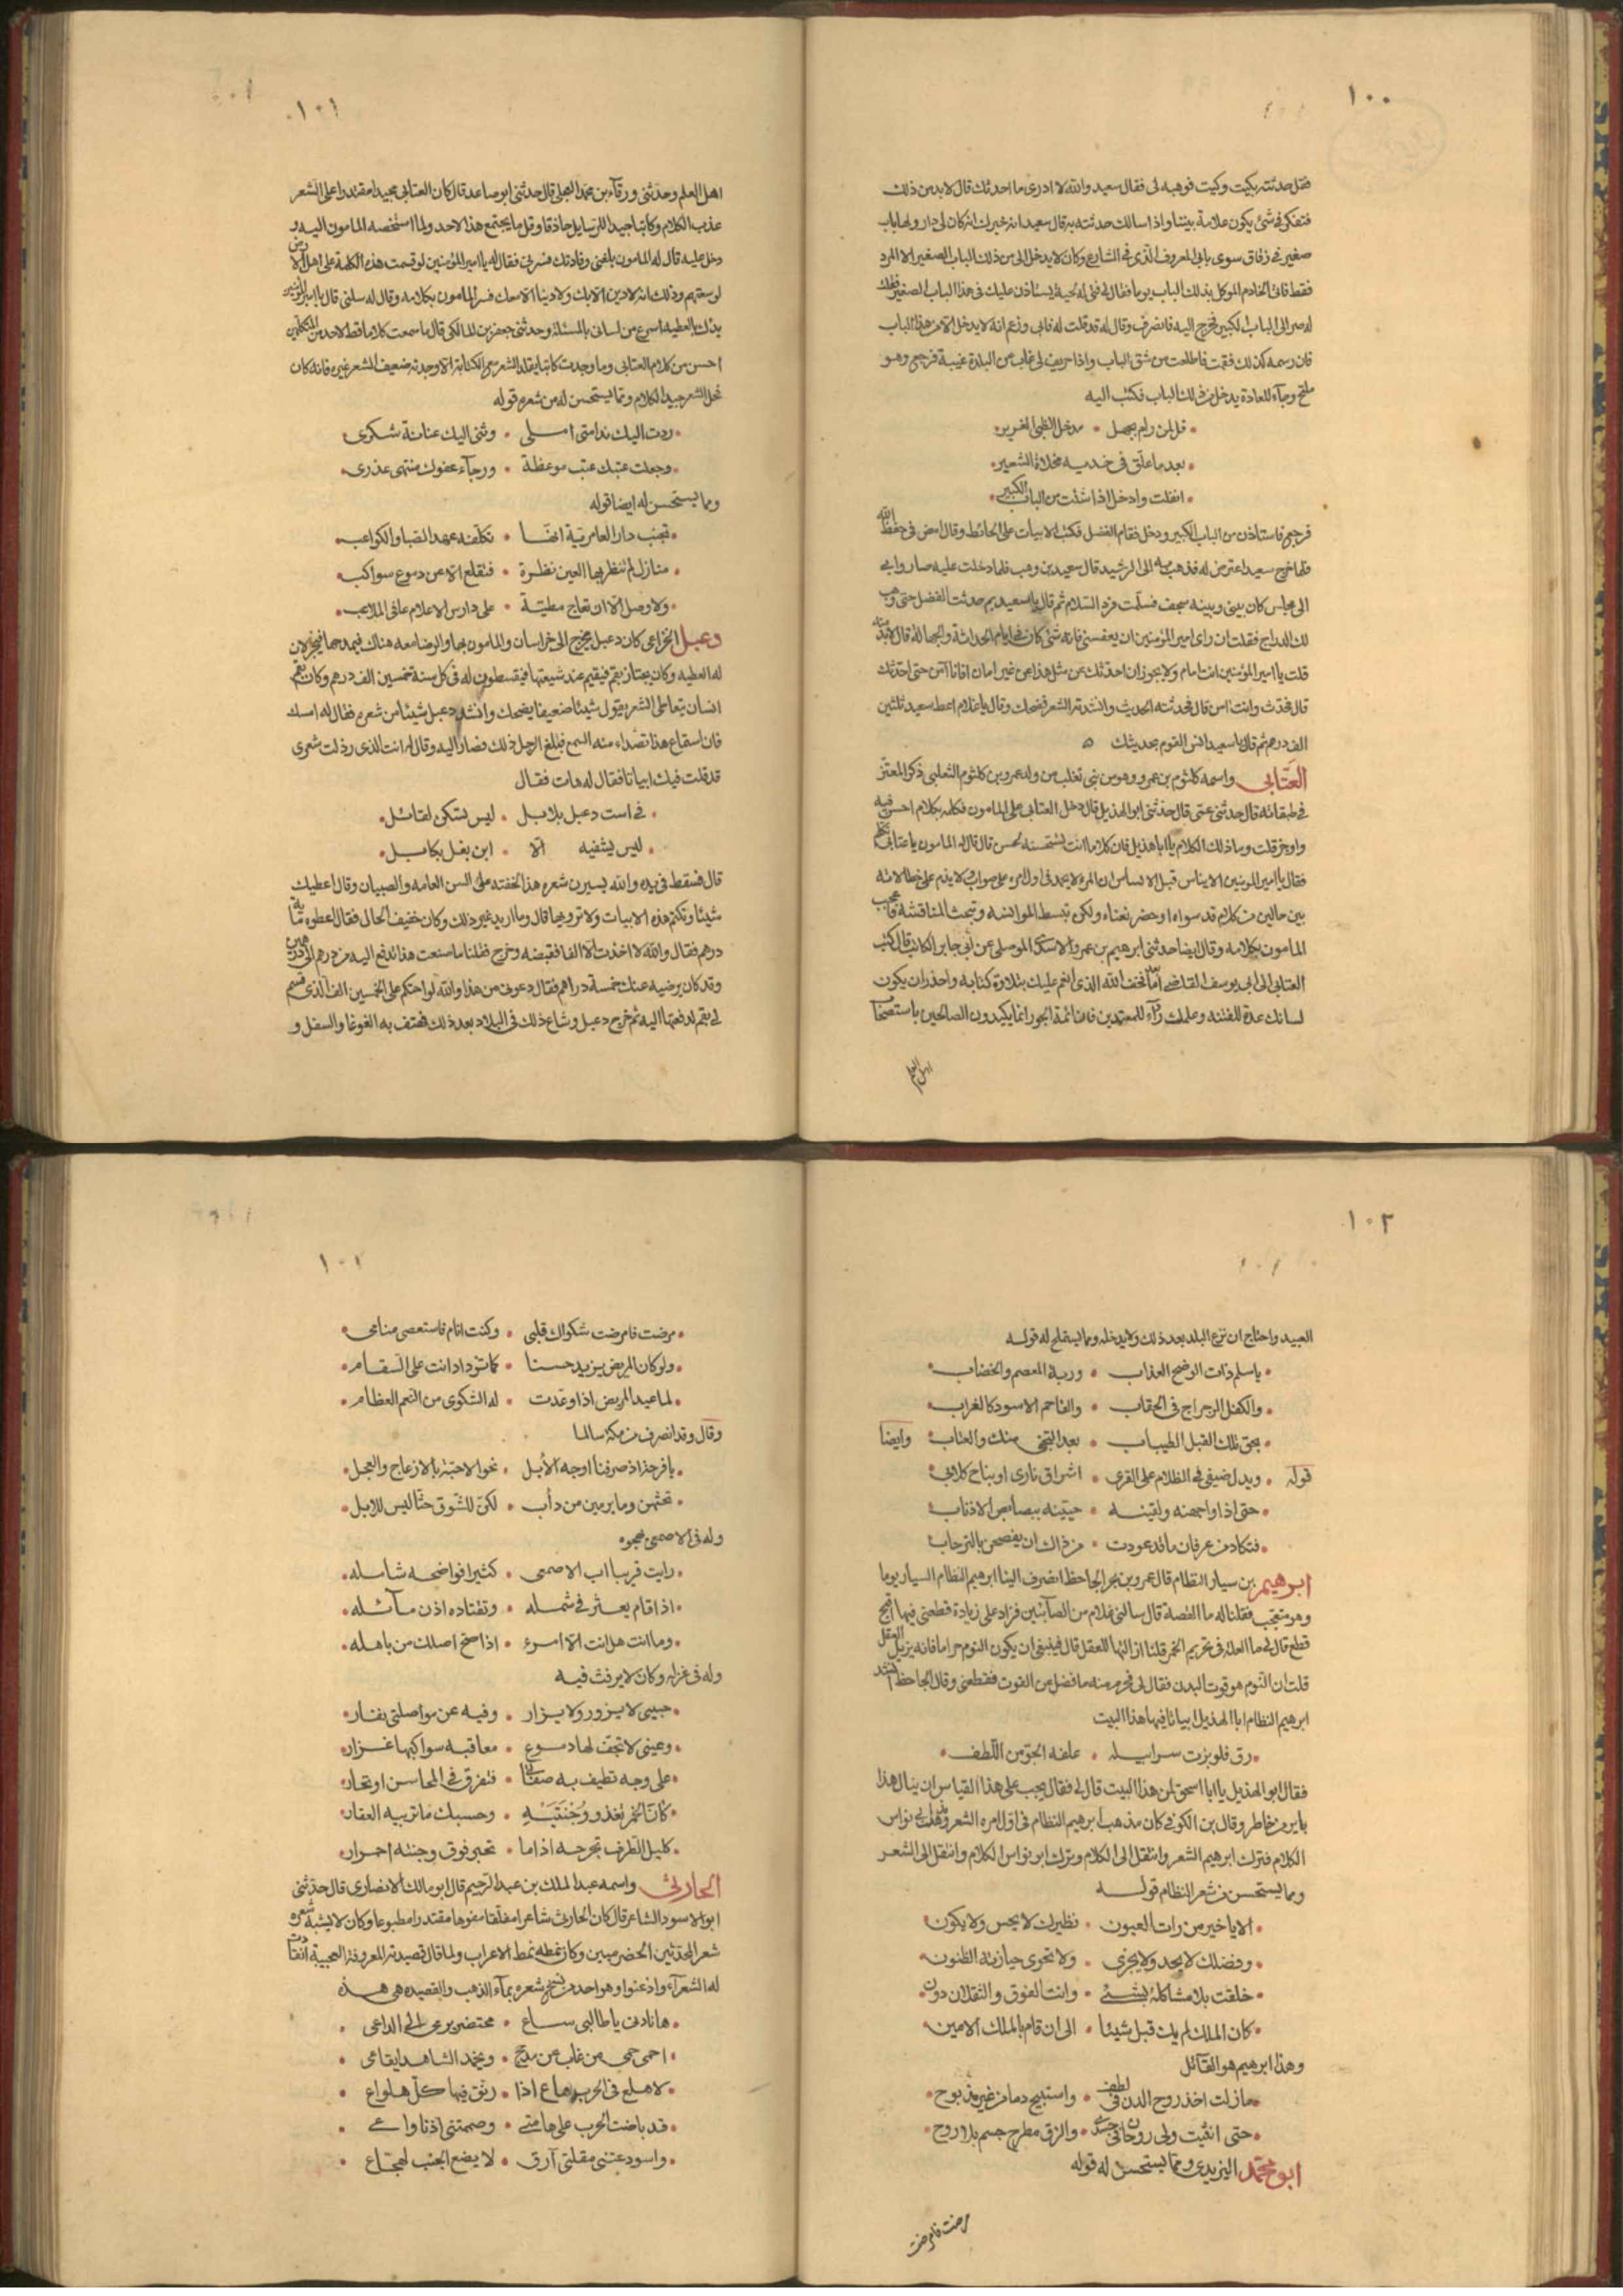 ١٠٠
فقل حدثته بكيت وكيت فوهبه لى فقال سعيد والله لا ادرى ما احدثك قال لا بد من ذلك
فتفكر فى شئ يكون علامة بيننا واذا سالك حدثته به قال سعيد انه خبرك انه كان لى دار ولها باب
صغير فى زقاق سوى بابى المعروف الذى فى الشارع وكان لا يدخل الى من ذلك الباب الصغير الا المرد
فقط فاتى الخادم الموكل بذلك الباب يوما فقال لى فتى له لحية يستاذن عليك فى هذا الباب الصغير فقلت
له صر الى الباب الكبير فخرج اليه فانصرف وقال له قد قلت له فابى وزعم انه لا يدخل الا من هذا الباب
فان رسمه كذلك فقمت فاطلعت من شق الباب واذا حريف لى غاب عن البلدة غيبة فرجع وهو
ملتح وجاء للعادة يدخل من ذلك الباب فكتب اليه
قل لمن رام بجهل • مدخل الظبى الغرير
بعد ما علق فى خديه مخلاة الشعير
انفلت وادخل اذا شئت من الباب الكبير
فرجع فاستاذن من الباب الكبير ودخل فقام الفضل فكتب الابيات على الحائط وقال امض فى حفظ الله
فلما خرج سعيد اعترض له فذهب به الى الرشيد قال سعيد بن وهب فلما دخلت عليه صار وابى
الى مجلس كان بينى وبينه سجف فسلمت فرد السلام ثم قال يا سعيد بم حدثت الفضل حتى وهب
لك الدراج فقلت ان راى امير المؤمنين ان يعفينى فانه شئ كان فى ايام الحداثة والجهالة قال لا بد منه
قلت يا امير المؤمنين انت امام ولا يجوز ان احدثك عن مثل هذا عن غير امان افانا آمن حتى احدثك
قال فحدث وانت امن قال فحدثته الحديث وانشدته الشعر فضحك وقال يا غلام اعط سعيد ثلثين
الف درهم ثم قال يا سعيد انس القوم بحديثك
العتابى واسمه كلثوم بن عمرو وهو من بنى تغلب من ولد عمرو بن كلثوم الثعلبى ذكر المعتز
فى طبقاته قال حدثنى عمتى قال حدثنى ابو الهذيل قال دخل العتابى على المامون فكلمه بكلام احسن فيه
واوجز قلت وما ذلك الكلام يا ابا هذيل فان كلاما انت تستحسنه لحسن قال قال له المامون يا عتابى تكلم
فقال يا امير المومنين الايناس قبل الابساس ان المرء لا يحمد فى اول امره على صواب ولا يذم على خطا لانه
بين حالين من كلام قد سواه او حصر تعناه ولكن تبسط الموانسه وتبحث المناقشة فاعجب
المامون بكلامه وقال ايضا حدثنى ابرهيم بن عمرو الاسدى الموصلى عن ابى جابر الكاتب قال كتب
العتابى الى ابى يوسف القاضى اما بعد فخف الله الذى انعم عليك بتلاوة كتابه واحذر ان يكون
لسانك عدة للفتنه وعلمك ردء للمعتدين فان ائمة الجور انما يكيدون الصالحين باستصحاب
اهل العلم
١٠١
اهل العلم وحدثنى ورقاء بن محمد العجلى قال حدثنى ابو صاعد قال كان العتابى مجيدا مقتدرا على الشعر
عذب الكلام وكاتبا جيد الترسايل حاذقا وقل ما يجتمع هذا لاحد ولما استخصه المامون اليه و
دخل عليه قال له المامون بلغنى وفادتك فسرتنى فقال له يا امير المؤمنين لو قسمت هذه الكلمة على اهل الارض
لوسعتهم وذلك انه لا دين الا بك ولا دينا الا معك فسر المامون بكلامه وقال له سلنى قال يا امير المومنين
يدك بالعطية اسرع من لسانى بالمسئلة وحدثنى جعفر بن المالكى قال ما سمعت كلاما قط لاحد من المتكلمين
احسن من كلام العتابى وما وجدت كاتبا يقلد الشعر مع الكتابة الا وجدته ضعيف الشعر غيره فانه كان
فحل الشعر جيد الكلام ومما يستحسن له من شعره قوله
ردت اليك ندامتى املى • وثنى اليك عنانه شكرى
وجعلت عتبك عتب موعظة • ورجاء عفوك منتهى عذرى
ومما يستحسن له ايضا قوله
تجنب دار العامرية انها • تكلفه عهد الصبا والكواعب
منازل لم تنظر بها العين نظرة • فتقلع الا عن دموع سواكب
ولا وصل الا ان تعاج مطية • على دارس الاعلام عافى الملاعب
دعبل الخزاعى كان دعبل يخرج الى خراسان والمامون بها والرضا معه هناك فيمدحهما فيجزلان
له العطيه وكان يجتاز بقم فيقيم عند شيعتها فيقسطون له فى كل سنة خمسين الف درهم وكان بقم
انسان يتعاطى الشعر يقول شيئا ضعيفا يضحك وانشد دعبل شيئا من شعره فقال له امسك
فان استماع هذا تصداء منه السمع فبلغ الرجل ذلك فصار اليه وقال له انت الذى رذلت شعرى
قد قلت فيك ابياتا فقال له هات فقال
فى است دعبل بلابل • ليس يشكى لقائل
ليس يشفيه الا • ابن بغل بكابل
قال فسقط فى يده والله يسيرن شعره هذا لخفته على السن العامه والصبيان وقال اعطيك
شيئا وتكتم هذه الابيات ولا ترويها قال وما اريد غير ذلك وكان خفيف الحال فقال اعطوه مائة
درهم فقال والله لا اخذت الا الفا فقبضه وخرج فقلنا ما صنعت هذا تدفع اليه من درهم الى
وقد كان يرضيه عنك خمسة دراهم فقال دعونى من هذا والله لو احتكم على الخمسين الف الذى قسم
لى بقم لدفعتها اليه ثم خرج دعبل وشاع ذلك فى البلاد بعد ذلك فهتف به الغوغا والسفل و
١٠٢
العبيد واحتاج ان نزع البلد بعد ذلك ولا يدخله ومما يستملح له قوله
يا سلم ذات الوضح العذاب • وربة المعصم والخضاب
والكفل الرجراج فى الحقاب • والفاحم الاسود كالغراب
بحق تلك القبل الطيباب • بعد التجنى منك والعتاب وايضا
قوله • ويدل ضيفى فى الظلام على القرى • اشراق نارى او بناح كلابى
حتى اذا واجهنه ولقينه • حيينه ببصابص الاذناب
فتكاد من عرفان ما قد عودت • من ذاك ان يفصحن بالترحاب
ابرهيم بن سيار النظام قال عمرو بن بحر الجاحظ انصرف الينا ابرهيم النظام السيار يوما
وهو متعجب فقلنا له ما القصة قال سالنى غلام من الصابئين فزاد على زيادة قطعنى فيها اقبح
قطع قال لى ما العلة فى تحريم الخمر قلنا ازالتها للعقل قال فينبغى ان يكون النوم حراما فانه يزيل العقل
قلت ان النوم هو قوت البدن فقال لى فحرم منه ما فضل من القوت فقطعنى وقال الجاحظ انشد
ابرهيم النظام ابا الهذيل ابياتا فيها هذا البيت
رق فلو بزت سرابيله • علقه الجو من اللطف
فقال ابو الهذيل يا ابا اسحق لمن هذا البيت قال لى فقال يجب على هذا القياس ان ينال هذا
باير من خاطر وقال بن الكوفى كان مذهب ابرهيم النظام فى اول امره الشعر ومذهب ابى نواس
الكلام فترك ابرهيم الشعر وانتقل الى الكلام وترك ابو نواس الكلام وانتقل الى الشعر
ومما يستحسن من شعر النظام قوله
الا يا خير من رات العيون • نظيرك لا يحس ولا يكون
وفضلك لا يحد ولا يجزى • ولا تحوى حيازته الظنون
خلقت بلا مشاكلة لشئ • وانت الفوق والثقلان دون
كان الملك لم يك قبل شيئا • الى ان قام بالملك الامين
وهذا ابرهيم هو القائل
ما زلت اخذ روح الدن فى لطف • واستبيح دما من غير مذبوح
حتى انثيت ولى روحان فى جسدى • والزق مطرح جسم بلا روح
ابو محمد اليزيدى ومما يستحسن له قوله
مرضت فامرضت
١٠١
مرضت فامرضت شكواك قلبى • وكنت انام فاستعصى منامى
ولو كان المريض يزيد حسنا • كما تزداد انت على السقام
لما عيد المريض اذا وعدت • له الشكوى من النعم العظام
وقال وقد انصرف من مكة سالما
يا فرحتا اذ صرفنا اوجه الابل • نحو الاحبة بالازعاج والعجل
تحثهن وما يرمين من دأب • لكن للشوق حثا ليس للابل
وله فى الاصمعى يهجوه
رايت قريبا اب الاصمعى • كثيرا فواضحه شامله
اذا قام يعثر فى شمله • وتقتاده اذن مائله
وما انت هل انت الا امرؤ • اذا صح اصلك من باهله
وله فى غزله وكان لا يرفث فيه
حبيبى لا يزور ولا يزار • وفيه عن مواصلتى نفار
وعينى لا تجف لها دموع • معاقبه سواكبها غزار
على وجه تطيف به صفات • فتفرق فى المحاسن او تحار
كان الخمر تغذو وجنتيه • وحسبك ما تربيه العقار
كليل الطرف تجرحه اذا ما • تحير فوق وجنته احمرار
الحارثى واسمه عبد الملك بن عبد الرحيم قال ابو مالك الانصارى قال حدثنى
ابو الاسود الشاعر قال كان الحارثى شاعرا مفلقا مفوها مقتدرا مطبوعا وكان لا يشبه شعره
شعر المحدثين الحضرميين وكان نمطه نمط الاعراب ولما قال قصيدته المعروفة العجيبة انقادت
له الشعراء واذعنوا وهو احد من نسخ شعره بماء الذهب والقصيده هى هذه
ها نادنى يا طالبى ساع • محتضر يرعى الى الداعى
احمى حمى من غاب عن مذحج • ويحمد الشاهد ايقاعى
لا هلع فى الحرب هاع اذا • رنق فيها كل هلواع
قد باضت الحرب على هامتى • وصممتنى اذنا واعى
واسودعتنى مقلتى ارق • لا يضع الجنب لهجاع